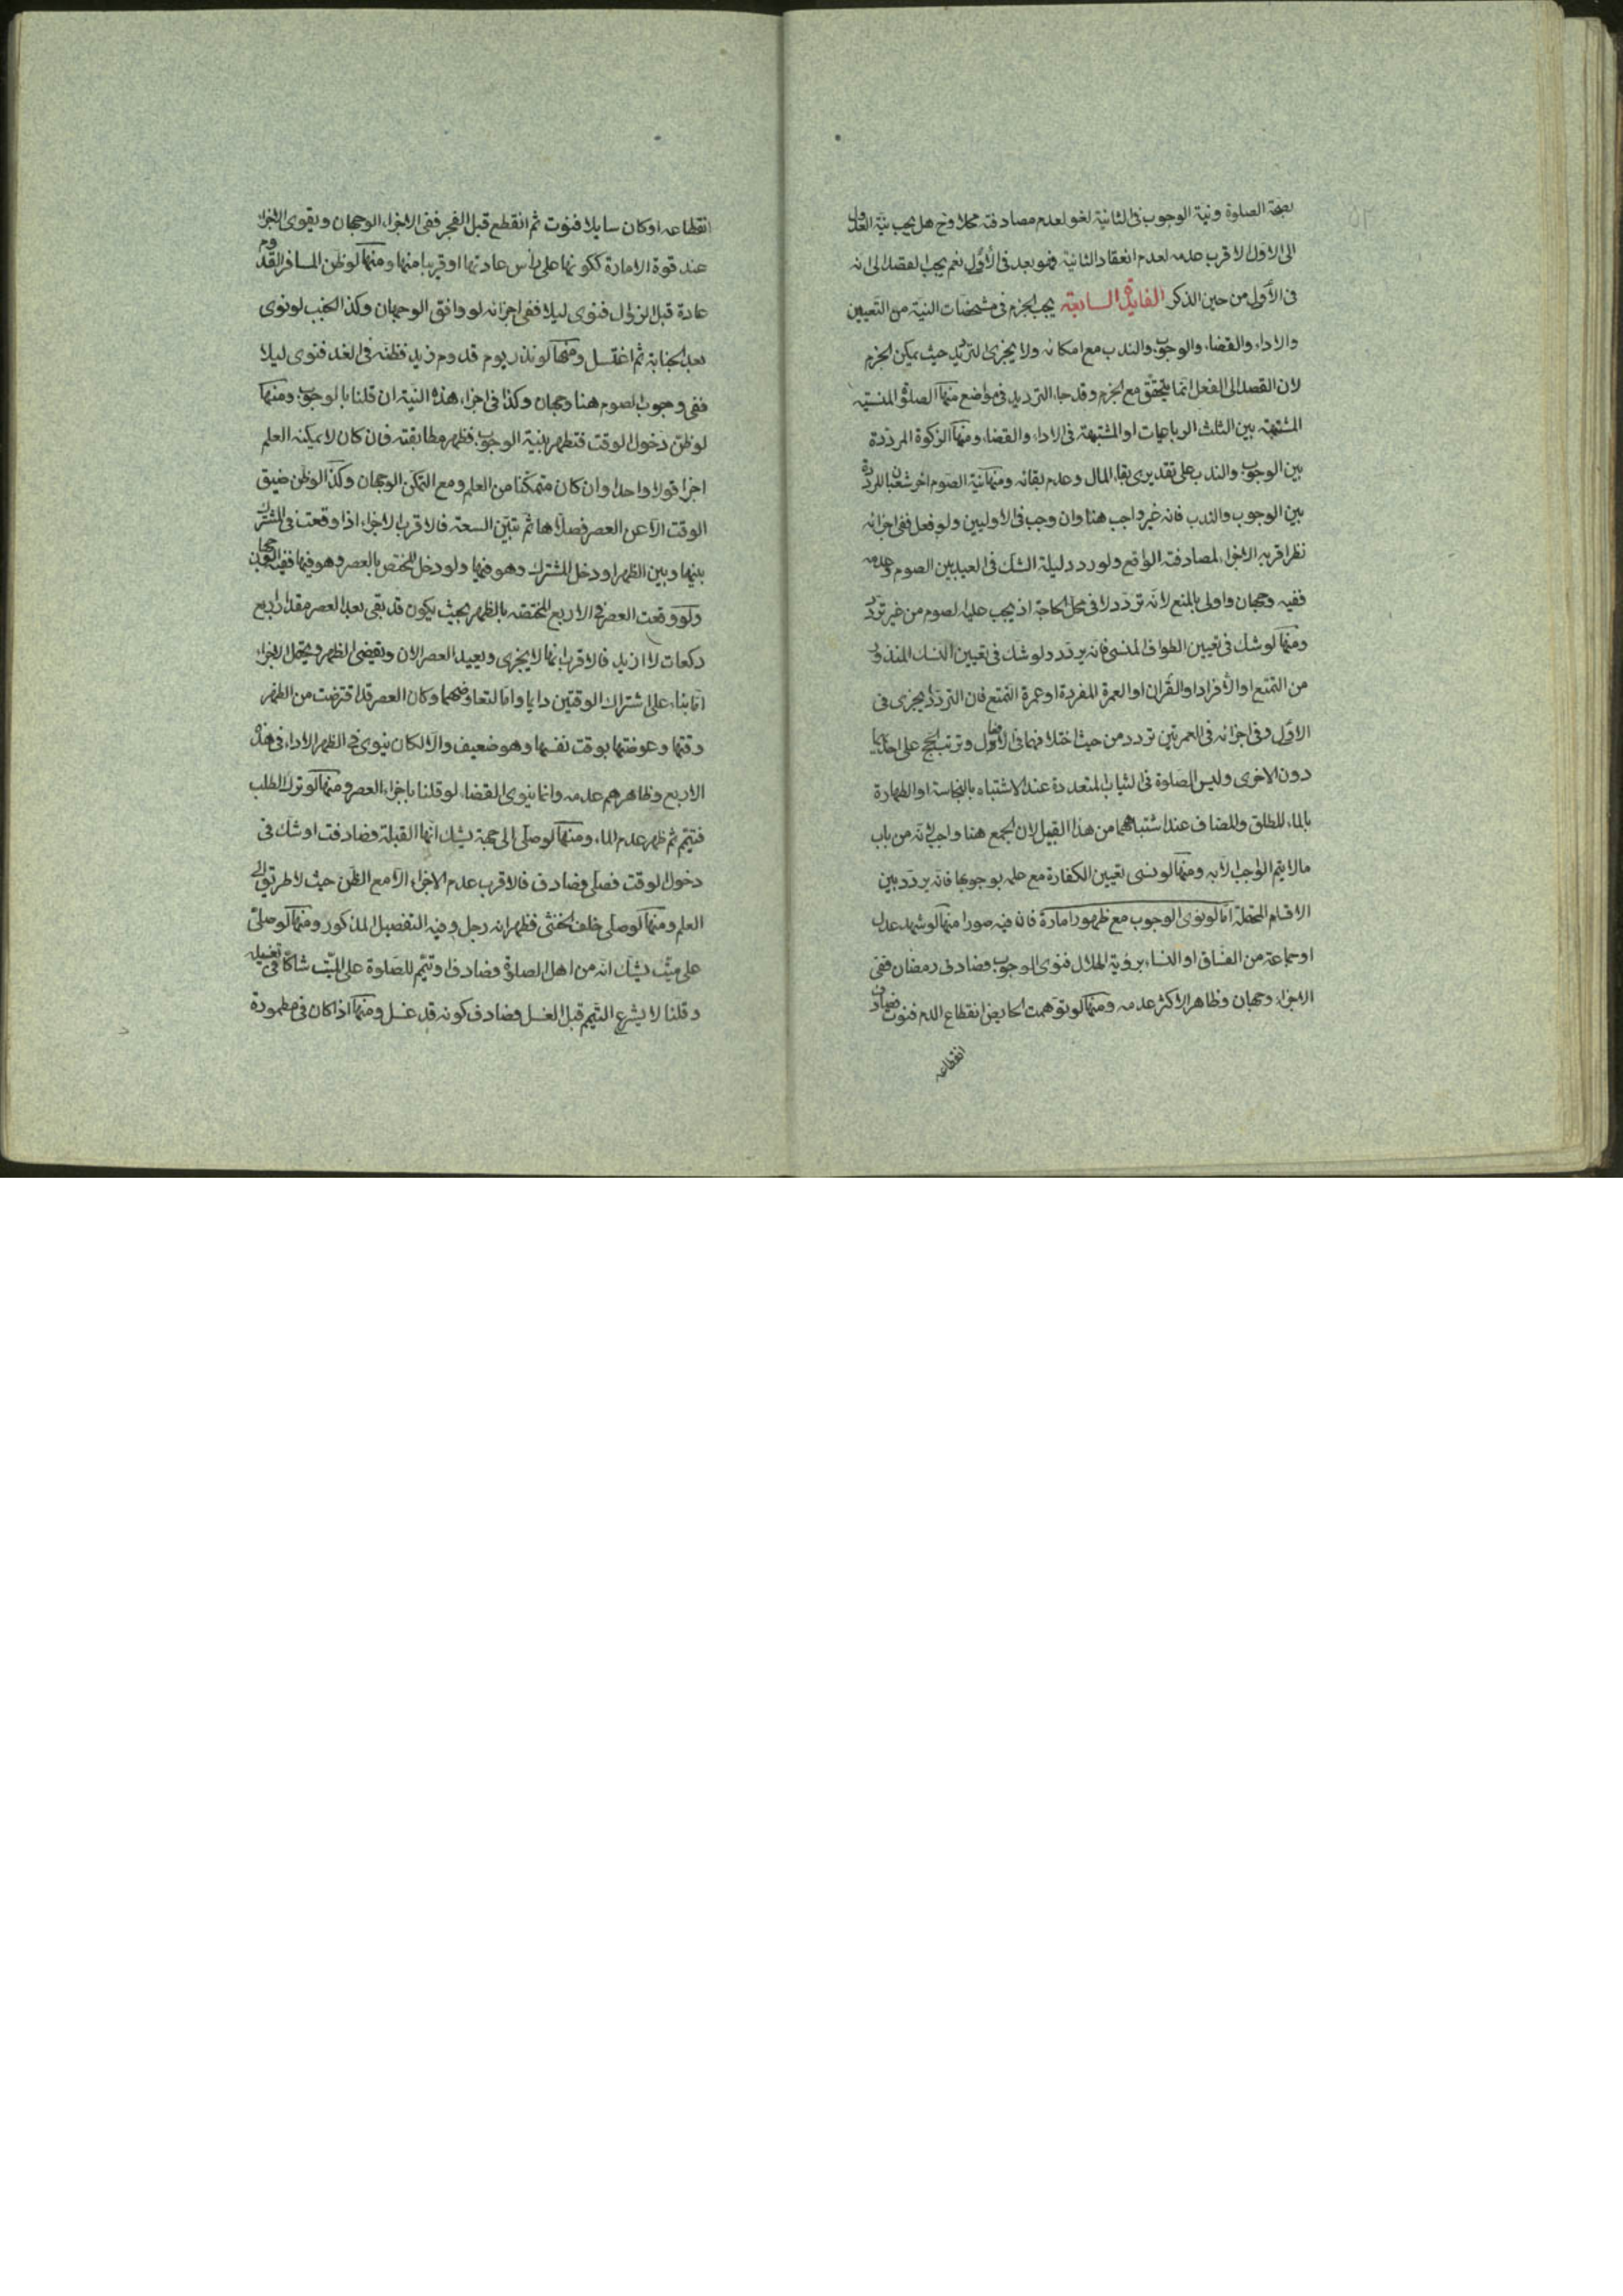 لصحة الصلوة ونية الوجوب فى الثانية لغو لعدم مصادفته محلا وح هل يجب نية العدول
الى الاول الاقرب عدمه لعدم انعقاد الثانية فهو بعد فى الأول نعم يجب القصد الى انه
فى الأول من حين الذكر الفايدة السابعة يجب الجزم فى مشخصات النية من التعيين
والاداء والقضاء والوجوب والندب مع امكانه ولا يجزى الترديد حيث يمكن الجزم
لان القصد الى الفعل انما يتحقق مع الجزم وقد جاء الترديد فى مواضع منها الصلوة المنسية
المشتبهة بين الثلث الرباعيات او المشتبهة فى الاداء والقضاء ومنها الزكوة المرددة
بين الوجوب والندب على تقديرى بقاء المال وعدم بقائه ومنها نية الصوم اخر شعبان المرددة
بين الوجوب والندب فانه غير واجب هنا وان وجب فى الاوليين ولو فعل ففى اجزائه
نظر اقربه الاجزاء لمصادفته الواقع ولو ردد ليلة الشك فى العيد بين الصوم وعدمه
ففيه وجهان واولى بالمنع لانه تردد لا فى محل الحاجة اذ يجب عليه الصوم من غير تردد
ومنها لو شك فى تعيين الطواف المنسى فانه يردد ولو شك فى تعيين النسك المنذور
من التمتع او الأفراد او القران او العمرة المفردة او عمرة التمتع فان التردد يجزى فى
الاول وفى اجزائه فى العمرتين تردد من حيث اختلافهما فى الأفعال وترتب الحج على احديهما
دون الاخرى وليس الصلوة فى الثياب المتعددة عند الاشتباه بالنجاسة او الطهارة
بالماء المطلق والمضاف عند اشتباههما من هذا القبيل لان الجمع هنا واجب لانه من باب
مالا يتم الواجب الا به ومنها لو نسى تعيين الكفارة مع علمه بوجوبها فانه يردد بين
الاقسام المحتملة اما لو نوى الوجوب مع ظهور امارة فانه فيه صورا منها لو شهد عدل
او جماعة من الفساق او النساء برؤية الهلال فنوى الوجوب وصادف رمضان ففى
الاجزاء وجهان وظاهر الاكثر عدمه ومنها لو توهمت الحايض انقطاع الدم فنوت فصادف
انقطاعه
انقطاعه او كان سايلا فنوت ثم انقطع قبل الفجر ففى الاجزاء الوجهان ويقوى الاجزاء
عند قوة الامارة ككونها على رأس عادتها او قريبا منها ومنها لو ظن المسافر القدوم
عادة قبل الزوال فنوى ليلا ففى اجزائه لو وافق الوجهان وكذا الجنب لو نوى
بعد الجنابة ثم اغتسل ومنها لو نذر يوم قدوم زيد فظنه فى الغد فنوى ليلا
ففى وجوب الصوم هنا وجهان وكذا فى اجزاء هذه النية ان قلنا بالوجوب ومنها
لو ظن دخول الوقت فتطهر بنية الوجوب فظهر مطابقته فان كان لا يمكنه العلم
اجزا قولا واحدا وان كان متمكنا من العلم ومع التمكن الوجهان وكذا لو ظن ضيق
الوقت الا عن العصر فصلاها ثم تبين السعة فالاقرب الاجزاء اذا وقعت فى المشترك
بينها وبين الظهر او دخل المشترك وهو فيها ولو دخل المختص بالعصر وهو فيها ففيه الوجهان
ولو وقعت العصر فى الاربع المختصة بالظهر بحيث يكون قد بقى بعد العصر مقدار اربع
ركعات لا ازيد فالاقرب انها لا يجزى ويعيد العصر الان ويقضى الظهر ويحتمل الاجزاء
اما بناء على اشتراك الوقتين دايما واما لتعاوضهما وكان العصر قد اقترضت من الظهر
وقتها وعوضتها بوقت نفسها وهو ضعيف والا لكان ينوى فى الظهر الاداء فى هذه
الاربع وظاهرهم عدمه وانما ينوى القضاء لو قلنا باجزاء العصر ومنها لو ترك الطلب
فتيمم ثم ظهر عدم الماء ومنها لو صلى الى جهة يشك انها القبلة فصادفت او شك فى
دخول الوقت فصلى فصادف فالاقرب عدم الاجزاء الا مع الظن حيث لا طريق الى
العلم ومنها لو صلى خلف الخنثى فظهر انه رجل وفيه التفصيل المذكور ومنها لو صلى
على ميت يشك انه من اهل الصلوة فصادف او تيمم للصلوة على الميت شاكا فى تغسيله
وقلنا لا يشرع التيمم قبل الغسل فصادف كونه قد غسل ومنها اذا كان فى مطمورة